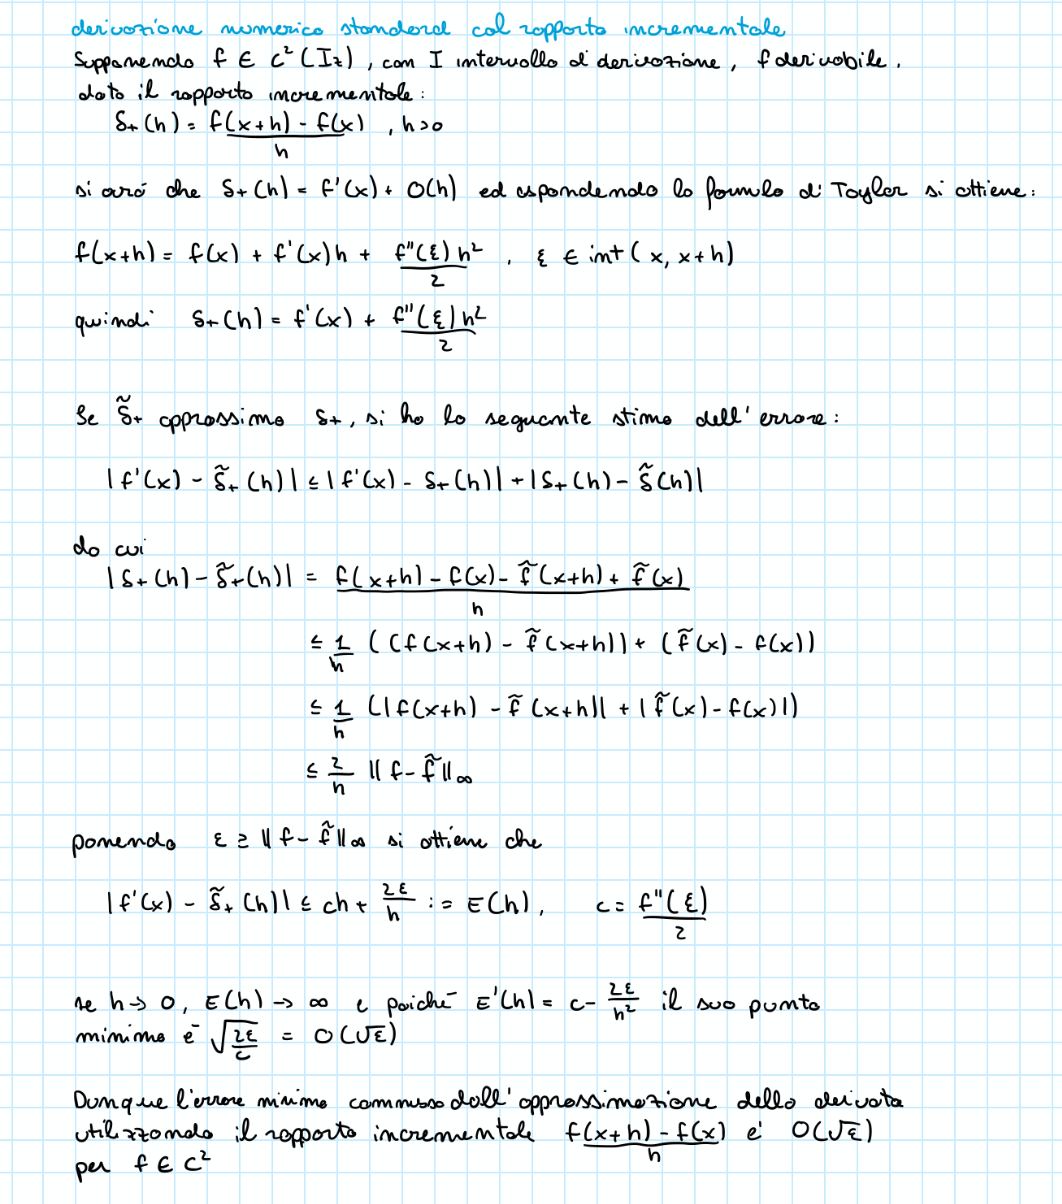 derivazione numerica standard col rapporto incrementale
Supponendo f ∈ C²(Iz), con I intervallo di derivazione, f derivabile.
dato il rapporto incrementale:
δ+(h) = (f(x+h) - f(x))/h , h>0
si avrá che δ+(h) = f'(x) + O(h) ed espandendo la formula di Taylor si ottiene:
f(x+h) = f(x) + f'(x)h + f''(ξ)h²/2 , ξ ∈ int(x, x+h)
quindi δ+(h) = f'(x) + f''(ξ)h²/2
Se δ̃+ approssima δ+, si ha la seguente stima dell'errore:
|f'(x) - δ̃+(h)| ≤ |f'(x) - δ+(h)| + |δ+(h) - δ̃(h)|
da cui
|δ+(h) - δ̃+(h)| = (f(x+h) - f(x) - f̃(x+h) + f̃(x))/h
≤ 1/h ((f(x+h) - f̃(x+h)) + (f̃(x) - f(x))
≤ 1/h (|f(x+h) - f̃(x+h)| + |f̃(x) - f(x)|)
≤ 2/h ||f - f̃||∞
ponendo ε ≥ ||f - f̃||∞ si ottiene che
|f'(x) - δ̃+(h)| ≤ ch + 2ε/h := E(h), c = f''(ξ)/2
se h → 0, E(h) → ∞ e poiché E'(h) = c - 2ε/h² il suo punto
minimo é √(2ε/c) = O(√ε)
Dunque l'errore minimo commesso dall'approssimazione della derivata
utilizzando il rapporto incrementale (f(x+h) - f(x))/h e' O(√ε)
per f ∈ C²